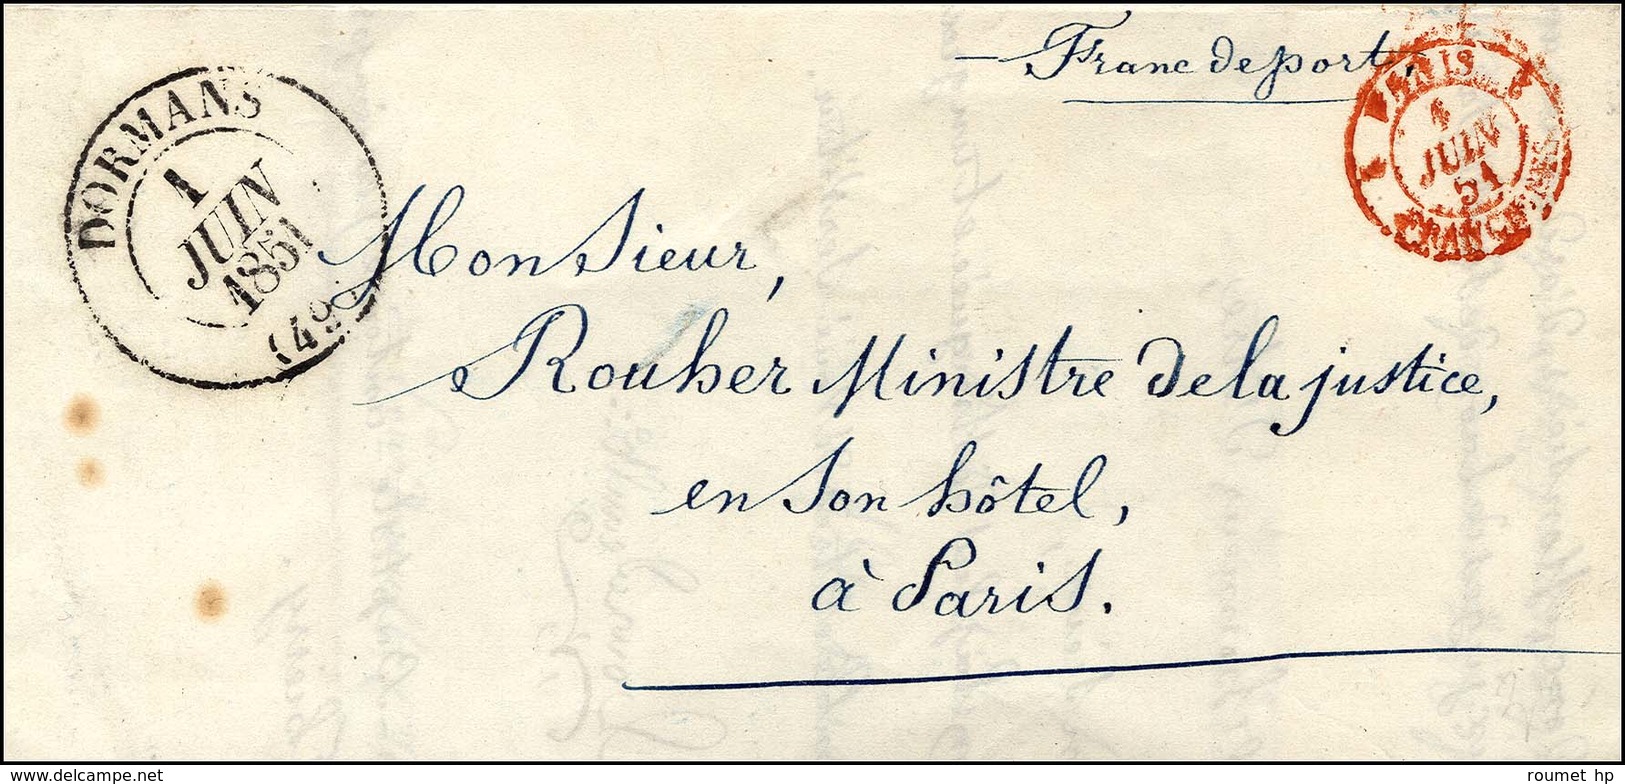 Franc de port,
DORMANS
1
JUIN
1851
(49)
PARIS
JUIN
51
FRANCHISES
Monsieur,
Rouher Ministre de la justice,
en son hôtel,
à Paris.
www.delcampe.net
roumet hp